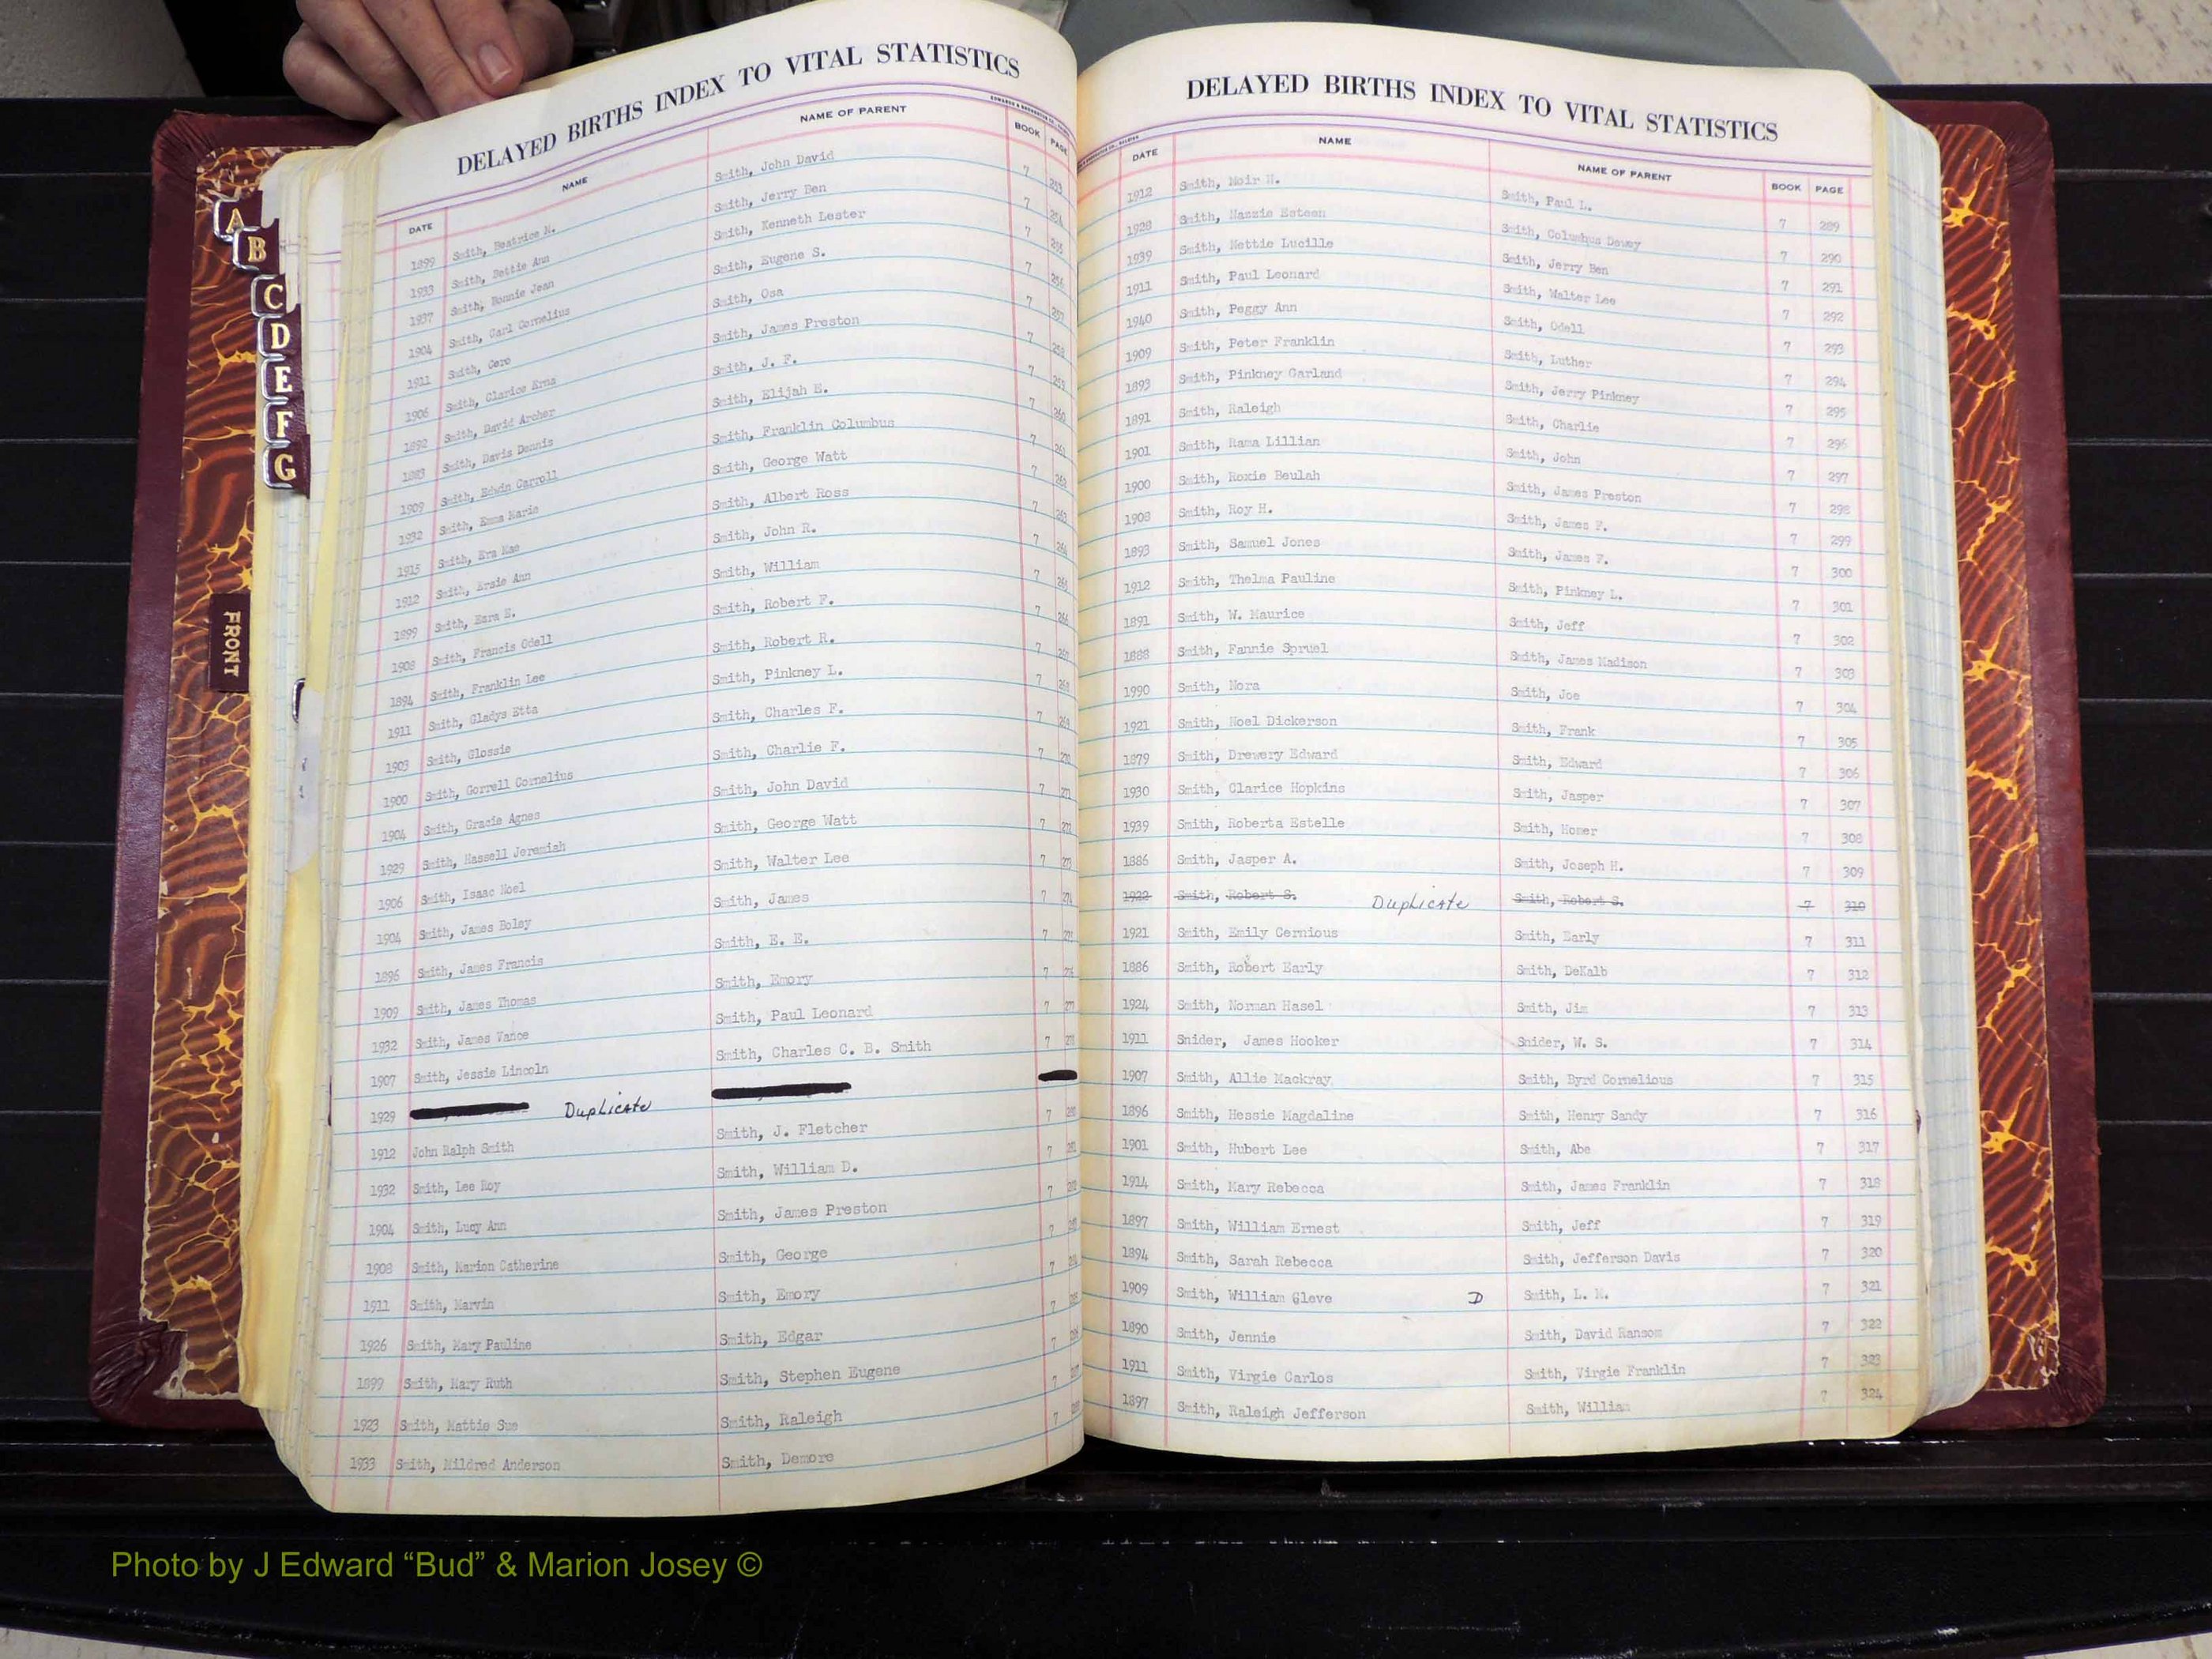 DELAYED BIRTHS INDEX TO VITAL STATISTICS
DATE NAME NAME OF PARENT BOOK PAGE
1899 Smith, Beatrice M. Smith, John David 7 253
1933 Smith, Bettie Ann Smith, Jerry Ben 7 254
1937 Smith, Bonnie Jean Smith, Kenneth Lester 7 255
1904 Smith, Carl Cornelius Smith, Eugene S. 7 256
1911 Smith, Cero Smith, Osa 7 257
1906 Smith, Clarice Erma Smith, James Preston 7 258
1892 Smith, David Archer Smith, J. F. 7 259
1883 Smith, Davis Dennis Smith, Elijah E. 7 260
1909 Smith, Edwin Carroll Smith, Franklin Columbus 7 261
1932 Smith, Emma Marie Smith, George Watt 7 262
1915 Smith, Era Mae Smith, Albert Ross 7 263
1912 Smith, Ersie Ann Smith, John R. 7 264
1899 Smith, Ezra E. Smith, William 7
1908 Smith, Francis Odell Smith, Robert F. 7 266
1894 Smith, Franklin Lee Smith, Robert R. 7 267
1911 Smith, Gladys Etta Smith, Pinkney L. 7 268
1903 Smith, Glossie Smith, Charles F. 7 269
1900 Smith, Gorrell Cornelius Smith, Charlie F. 7 270
1904 Smith, Gracie Agnes Smith, John David 7 271
1929 Smith, Hassell Jeremiah Smith, George Watt 7 272
1906 Smith, Isaac Noel Smith, Walter Lee 7 273
1904 Smith, James Boley Smith, James 7 274
1896 Smith, James Francis Smith, E. E. 7 275
1909 Smith, James Thomas Smith, Emory 7 276
1932 Smith, James Vance Smith, Paul Leonard 7 277
1907 Smith, Jessie Lincoln Smith, Charles C. B. Smith 7 278
1929 Duplicate
1912 John Ralph Smith Smith, J. Fletcher 7 280
1932 Smith, Lee Roy Smith, William D. 7 281
1904 Smith, Lucy Ann Smith, James Preston 7 282
1908 Smith, Marion Catherine Smith, George 7
1911 Smith, Marvin Smith, Emory 7
1926 Smith, Mary Pauline Smith, Edgar 7
1899 Smith, Mary Ruth Smith, Stephen Eugene 7
1923 Smith, Mattie Sue Smith, Raleigh 7
1933 Smith, Mildred Anderson Smith, Demore 7
DELAYED BIRTHS INDEX TO VITAL STATISTICS
DATE NAME NAME OF PARENT BOOK PAGE
1912 Smith, Moir H. Smith, Paul L. 7 289
1928 Smith, Nannie Esteen Smith, Columbus Dewey 7 290
1939 Smith, Nettie Lucille Smith, Jerry Ben 7 291
1911 Smith, Paul Leonard Smith, Walter Lee 7 292
1940 Smith, Peggy Ann Smith, Odell 7 293
1909 Smith, Peter Franklin Smith, Luther 7 294
1893 Smith, Pinkney Garland Smith, Jerry Pinkney 7 295
1891 Smith, Raleigh Smith, Charlie 7 296
1901 Smith, Rama Lillian Smith, John 7 297
1900 Smith, Roxie Beulah Smith, James Preston 7 298
1908 Smith, Roy H. Smith, James F. 7 299
1893 Smith, Samuel Jones Smith, James F. 7 300
1912 Smith, Thelma Pauline Smith, Pinkney L. 7 301
1891 Smith, W. Maurice Smith, Jeff 7 302
1888 Smith, Fannie Spruel Smith, James Madison 7 303
1990 Smith, Nora Smith, Joe 7 304
1921 Smith, Noel Dickerson Smith, Frank 7 305
1879 Smith, Drewery Edward Smith, Edward 7 306
1930 Smith, Clarice Hopkins Smith, Jasper 7 307
1939 Smith, Roberta Estelle Smith, Homer 7 308
1886 Smith, Jasper A. Smith, Joseph H. 7 309
1922 Smith, Robert S. Duplicate Smith, Robert S. 7 310
1921 Smith, Emily Cernious Smith, Early 7 311
1886 Smith, Robert Early Smith, DeKalb 7 312
1924 Smith, Norman Hasel Smith, Jim 7 313
1911 Snider, James Hooker Snider, W. S. 7 314
1907 Smith, Allie Mackray Smith, Byrd Cornelious 7 315
1896 Smith, Hessie Magdaline Smith, Henry Sandy 7 316
1901 Smith, Hubert Lee Smith, Abe 7 317
1914 Smith, Mary Rebecca Smith, James Franklin 7 318
1897 Smith, William Ernest Smith, Jeff 7 319
1894 Smith, Sarah Rebecca Smith, Jefferson Davis 7 320
1909 Smith, William Cleve D Smith, L. M. 7 321
1890 Smith, Jennie Smith, David Ransom 7 322
1911 Smith, Virgie Carlos Smith, Virgie Franklin 7 323
1897 Smith, Raleigh Jefferson Smith, William 7 324
A
B
C
D
E
F
G
FRONT
Photo by J Edward “Bud” & Marion Josey ©